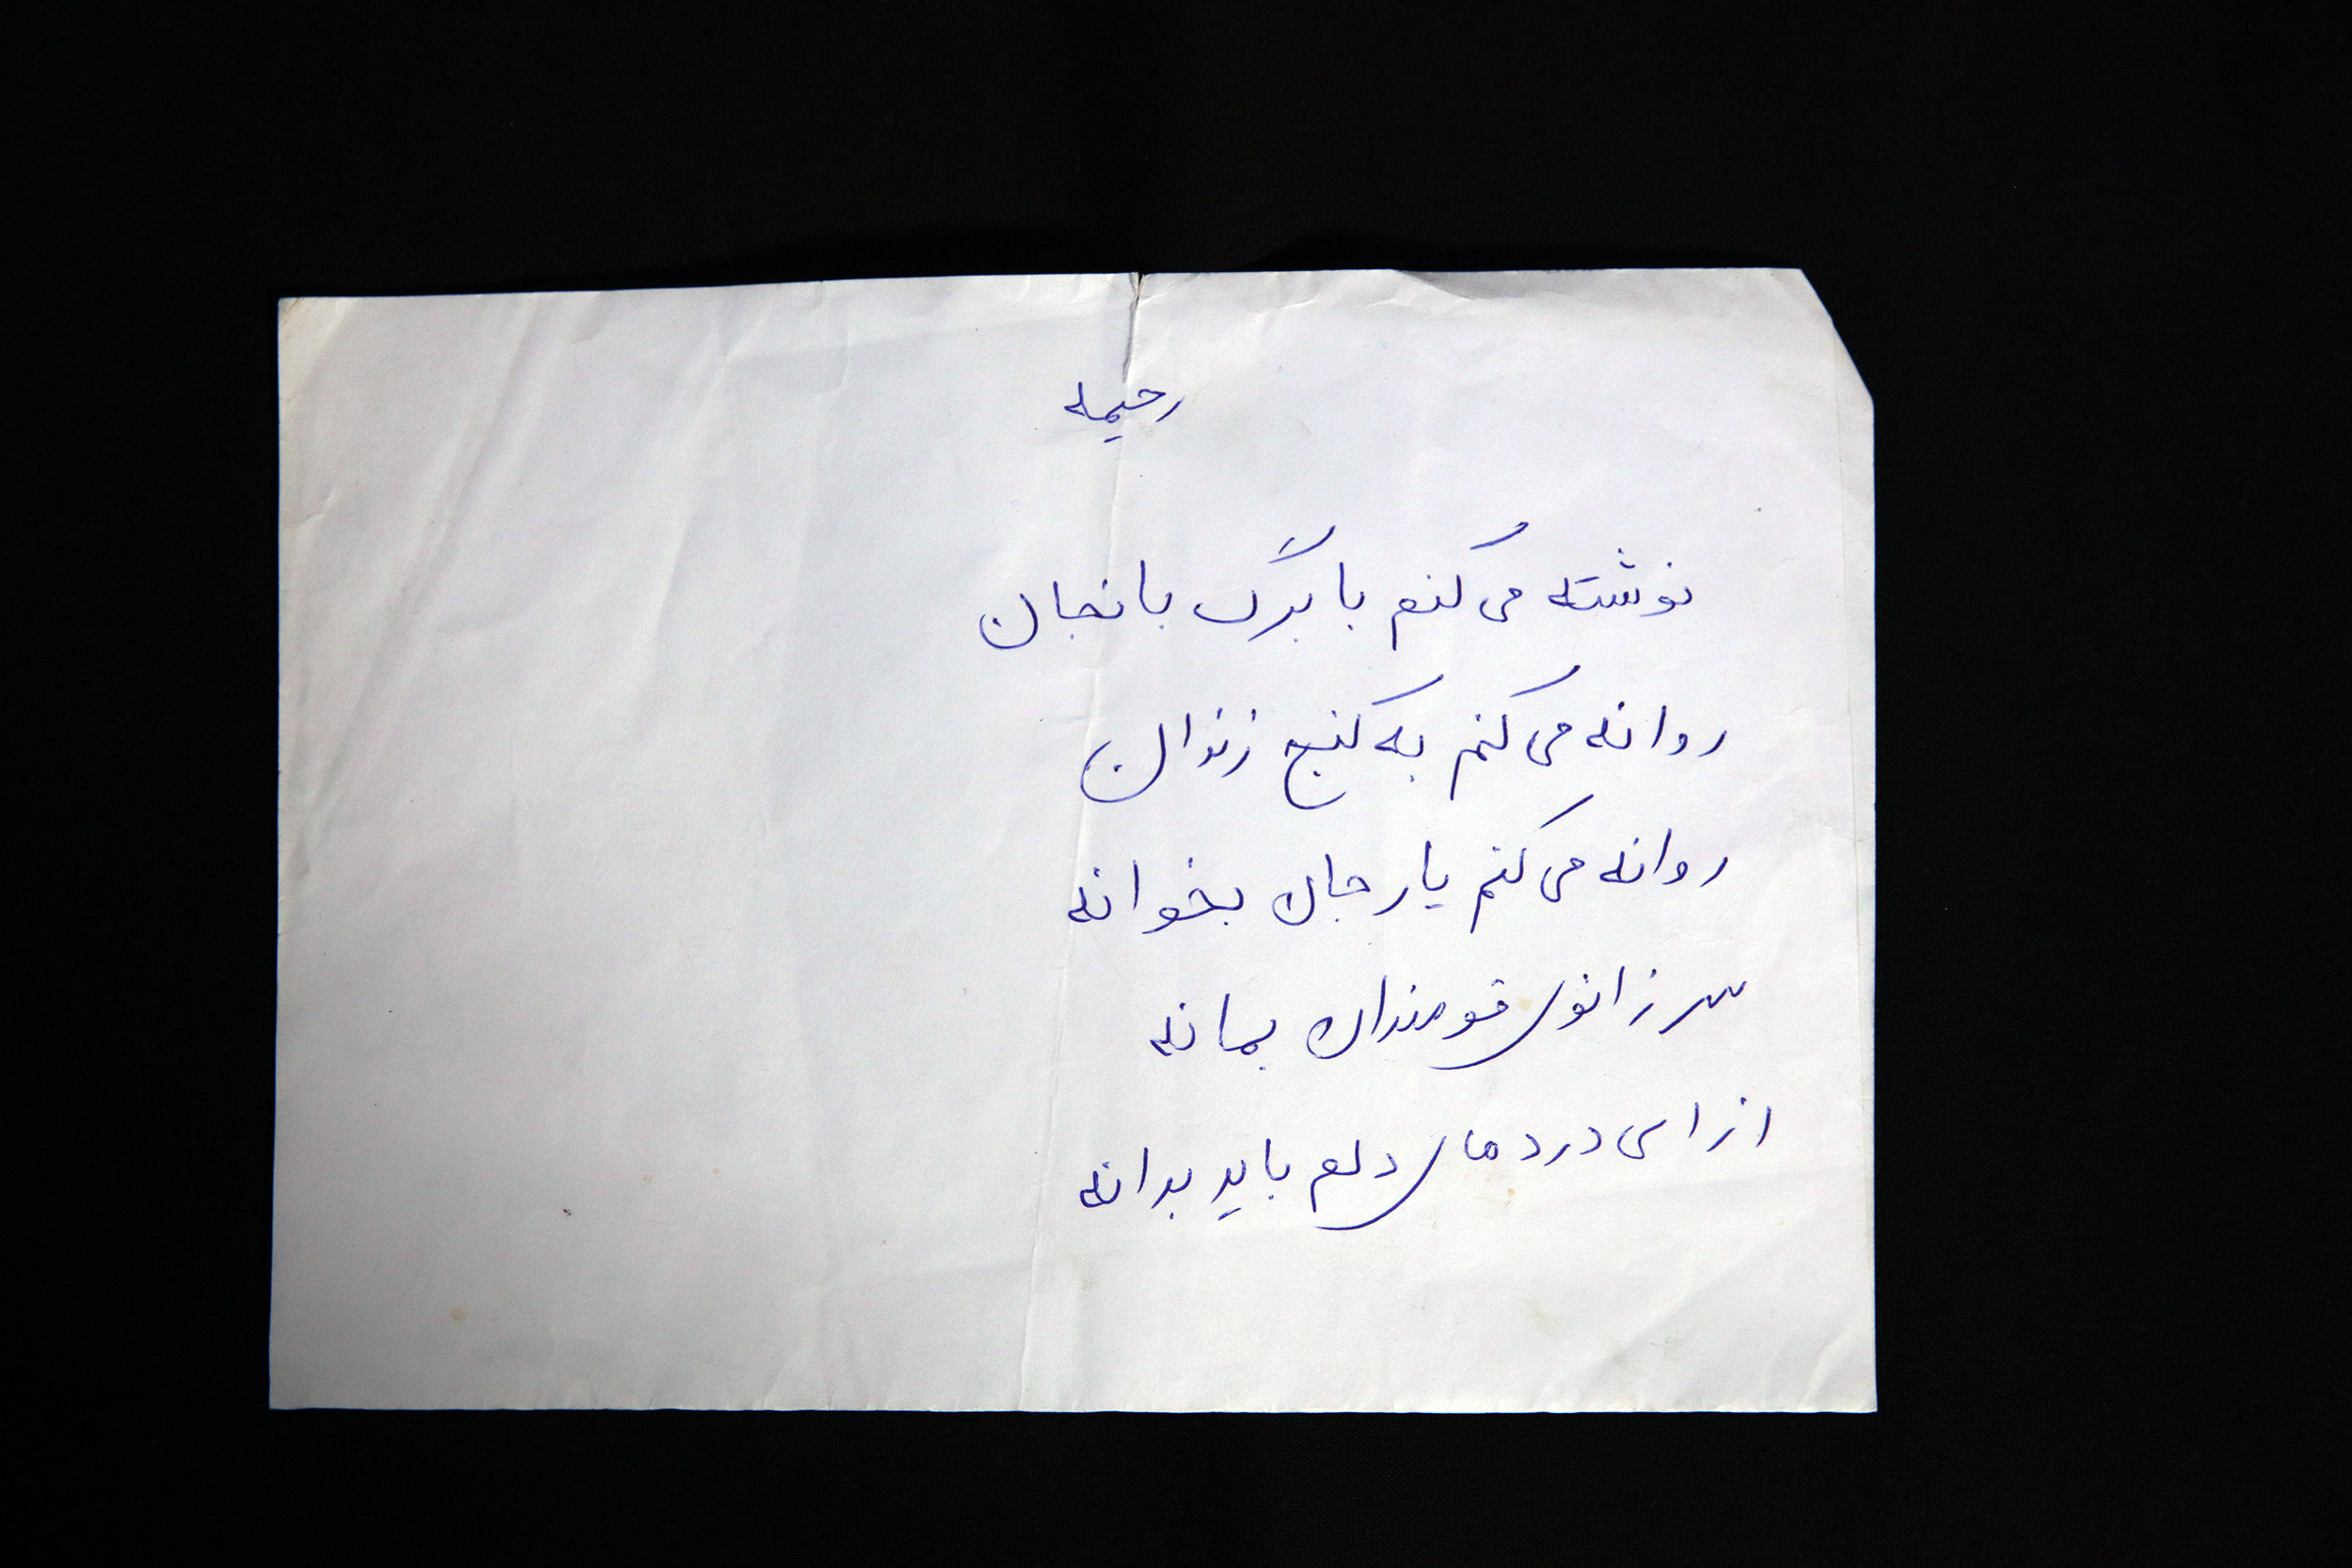 رحیمه
نوشته می کنم با برگ بانجان
روانه می کنم به کنج زندان
روانه می کنم یار جان بخوانه
سر زانوی قومندان بمانه
از ای درد های دلم باید بدانه